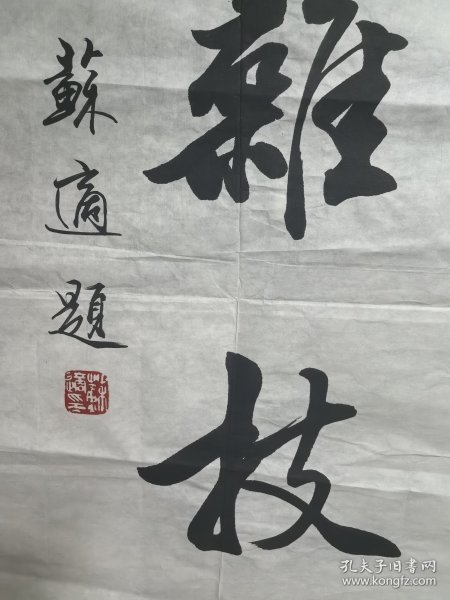 雜技
蘇適題
孔夫子旧书网
www.kongfz.com